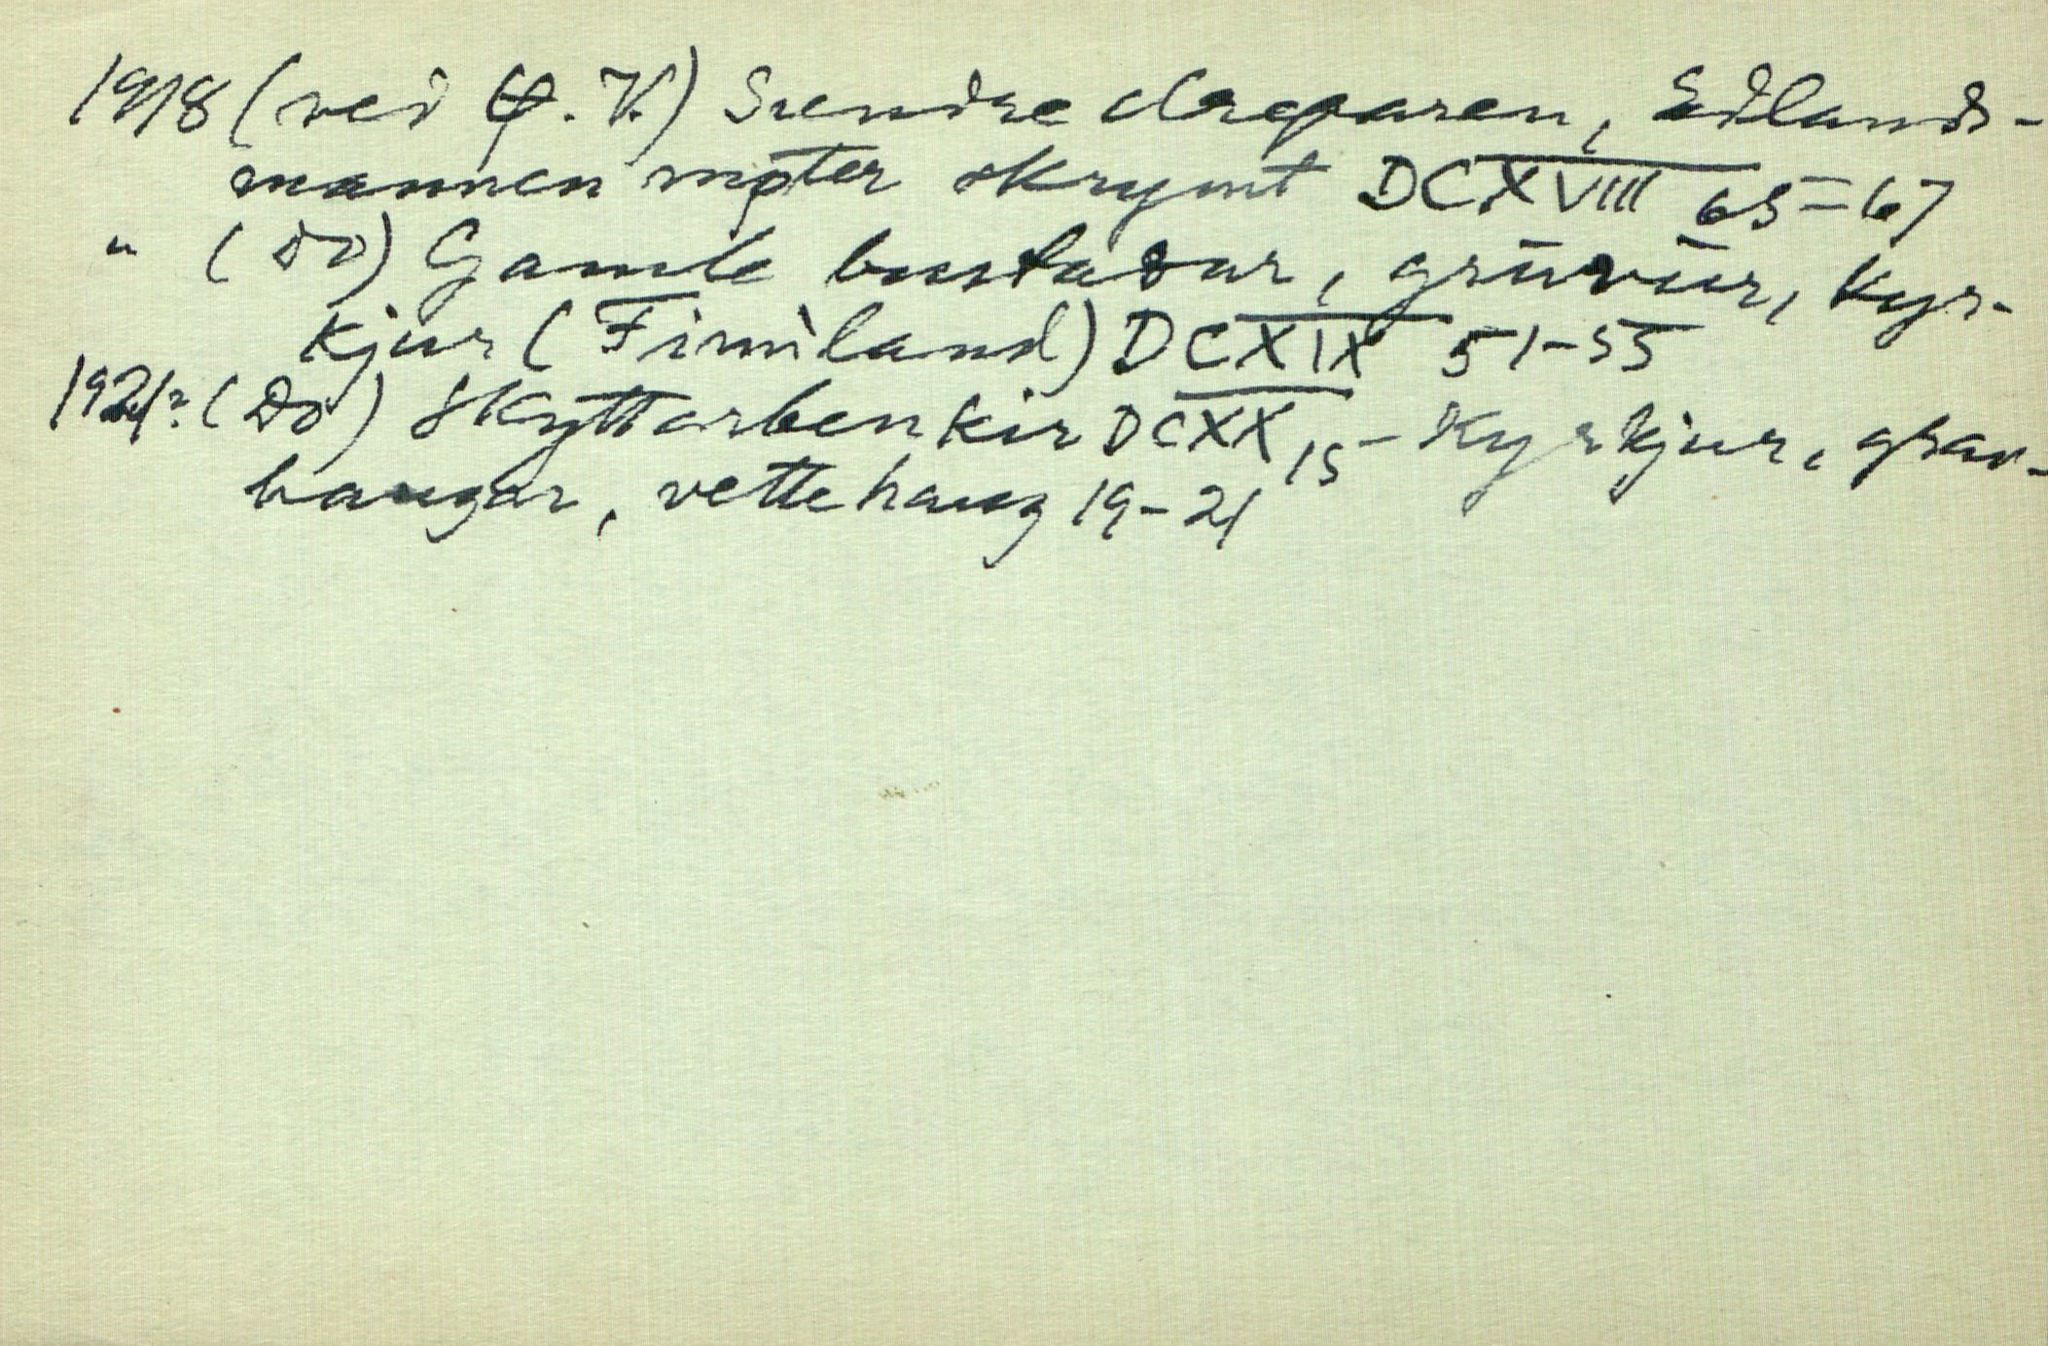 1918 (ved Ø. V.) Svendse dreparen, Edlands-
mannen møter skrymt DCXVIII 65-67
" (Do) Gamle bustadar, gruvur, kyr-
kjur (Fimland) DCXIX 51-55
1921? (Do) Skyttarbenkir DCXX 15 - Kyrkjur, grav-
haugar, vettehaug 19-21